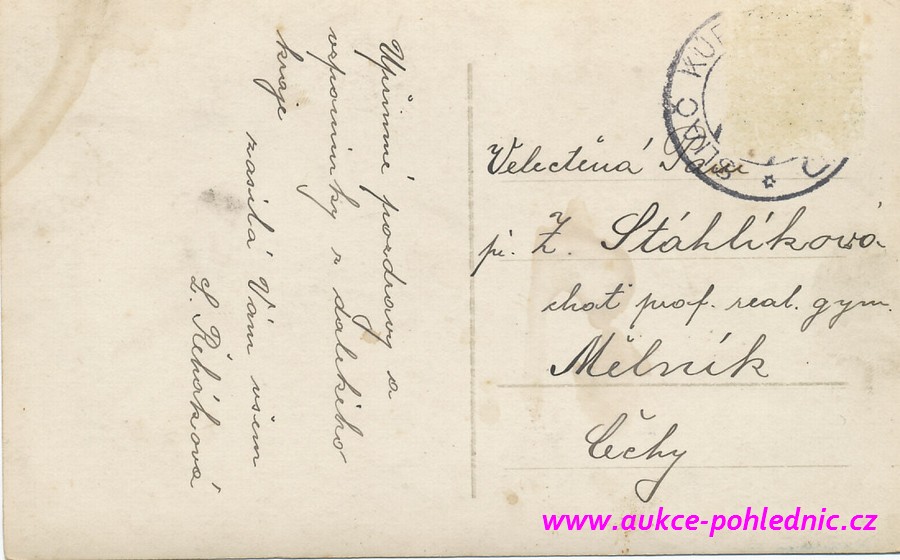 Upřímné pozdravy a
vzpomínky z dalekého
kraje zasílá Vám všem
L. Řeháková
SLIAČ KÚP
Velectěná Paní
pí. Z. Stáhlíková
choť prof. real. gym.
Mělník
Čechy
www.aukce-pohlednic.cz